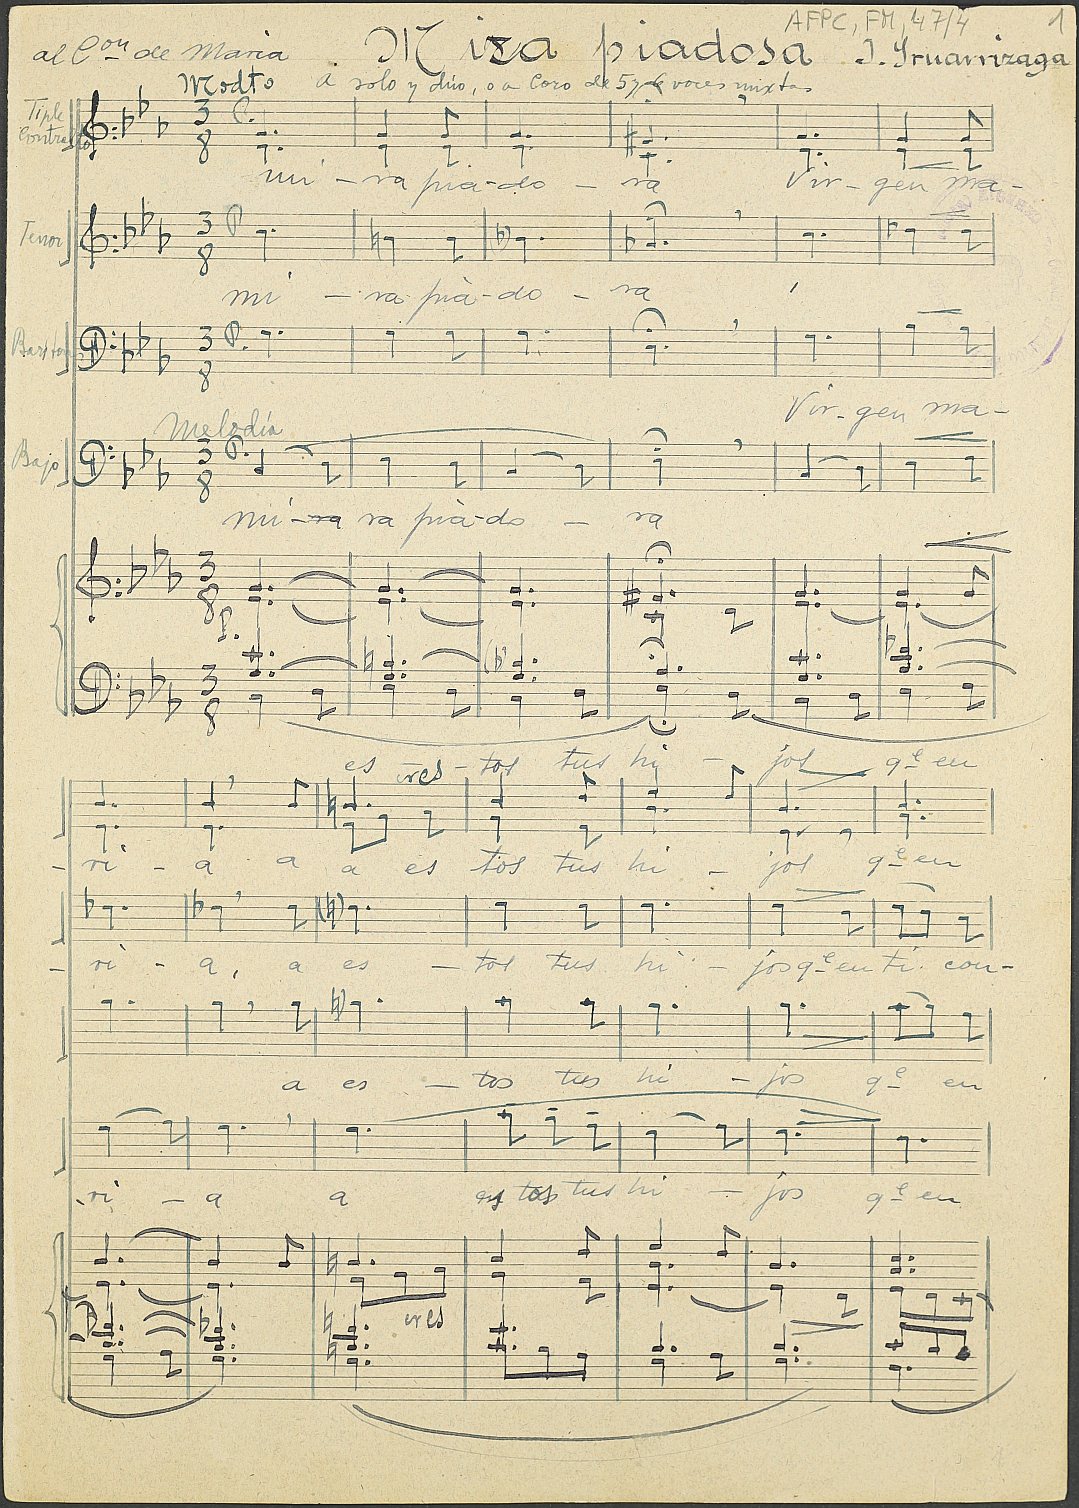 AFPC, FM, 47/4 1
al Con de Maria Mira piadosa J. Iruarrizaga
Modto A solo y dúo, o a Coro de 5 y 6 voces mixtas
Tiple
Contralto
mi - ra pia-do - ra Vir - gen ma -
Tenor
mi - ra pia-do - ra
Baritono
Vir - gen ma -
Melodía
Bajo
mi - ra ra pia-do - ra
P.
es tos tus hi - jos qe en
- ri - a a a es tos tus hi - jos qe en
- ri - a, a es - tos tus hi - jos qe en ti con -
a es - tos tus hi - jos qe en
ri - a a es tos tus hi - jos qe en
cres